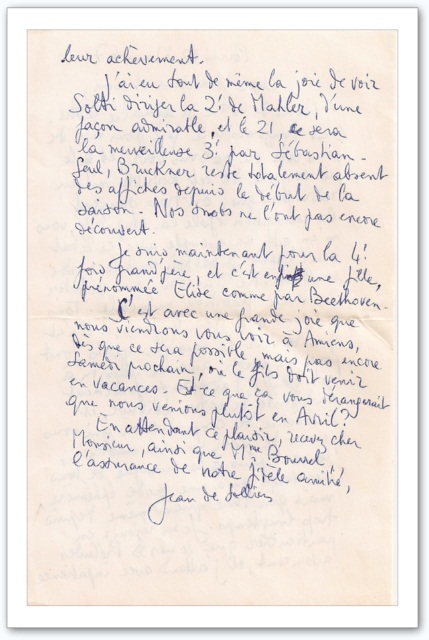 leur achèvement.
J'ai eu tout de même la joie de voir
Solti diriger la 2e de Mahler, d'une
façon admirable, et le 21, ce sera
la merveilleuse 3e par Sébastian.
Seul, Bruckner reste totalement absent
des affiches depuis le début de la
saison. Nos snobs ne l'ont pas encore
découvert.
Je suis maintenant pour la 4e
fois grand'père, et c'est enfin une fille,
prénommée Elise comme par Beethoven.
C'est avec une grande joie que
nous viendrons vous voir à Amiens,
dès que ce sera possible, mais pas encore
Samedi prochain, où le fils doit venir
en vacances. Est ce que ça vous dérangerait
que nous venions plutôt en Avril?
En attendant ce plaisir, recevez cher
Monsieur, ainsi que Mme
l'assurance de notre fidèle amitié,
Jean de